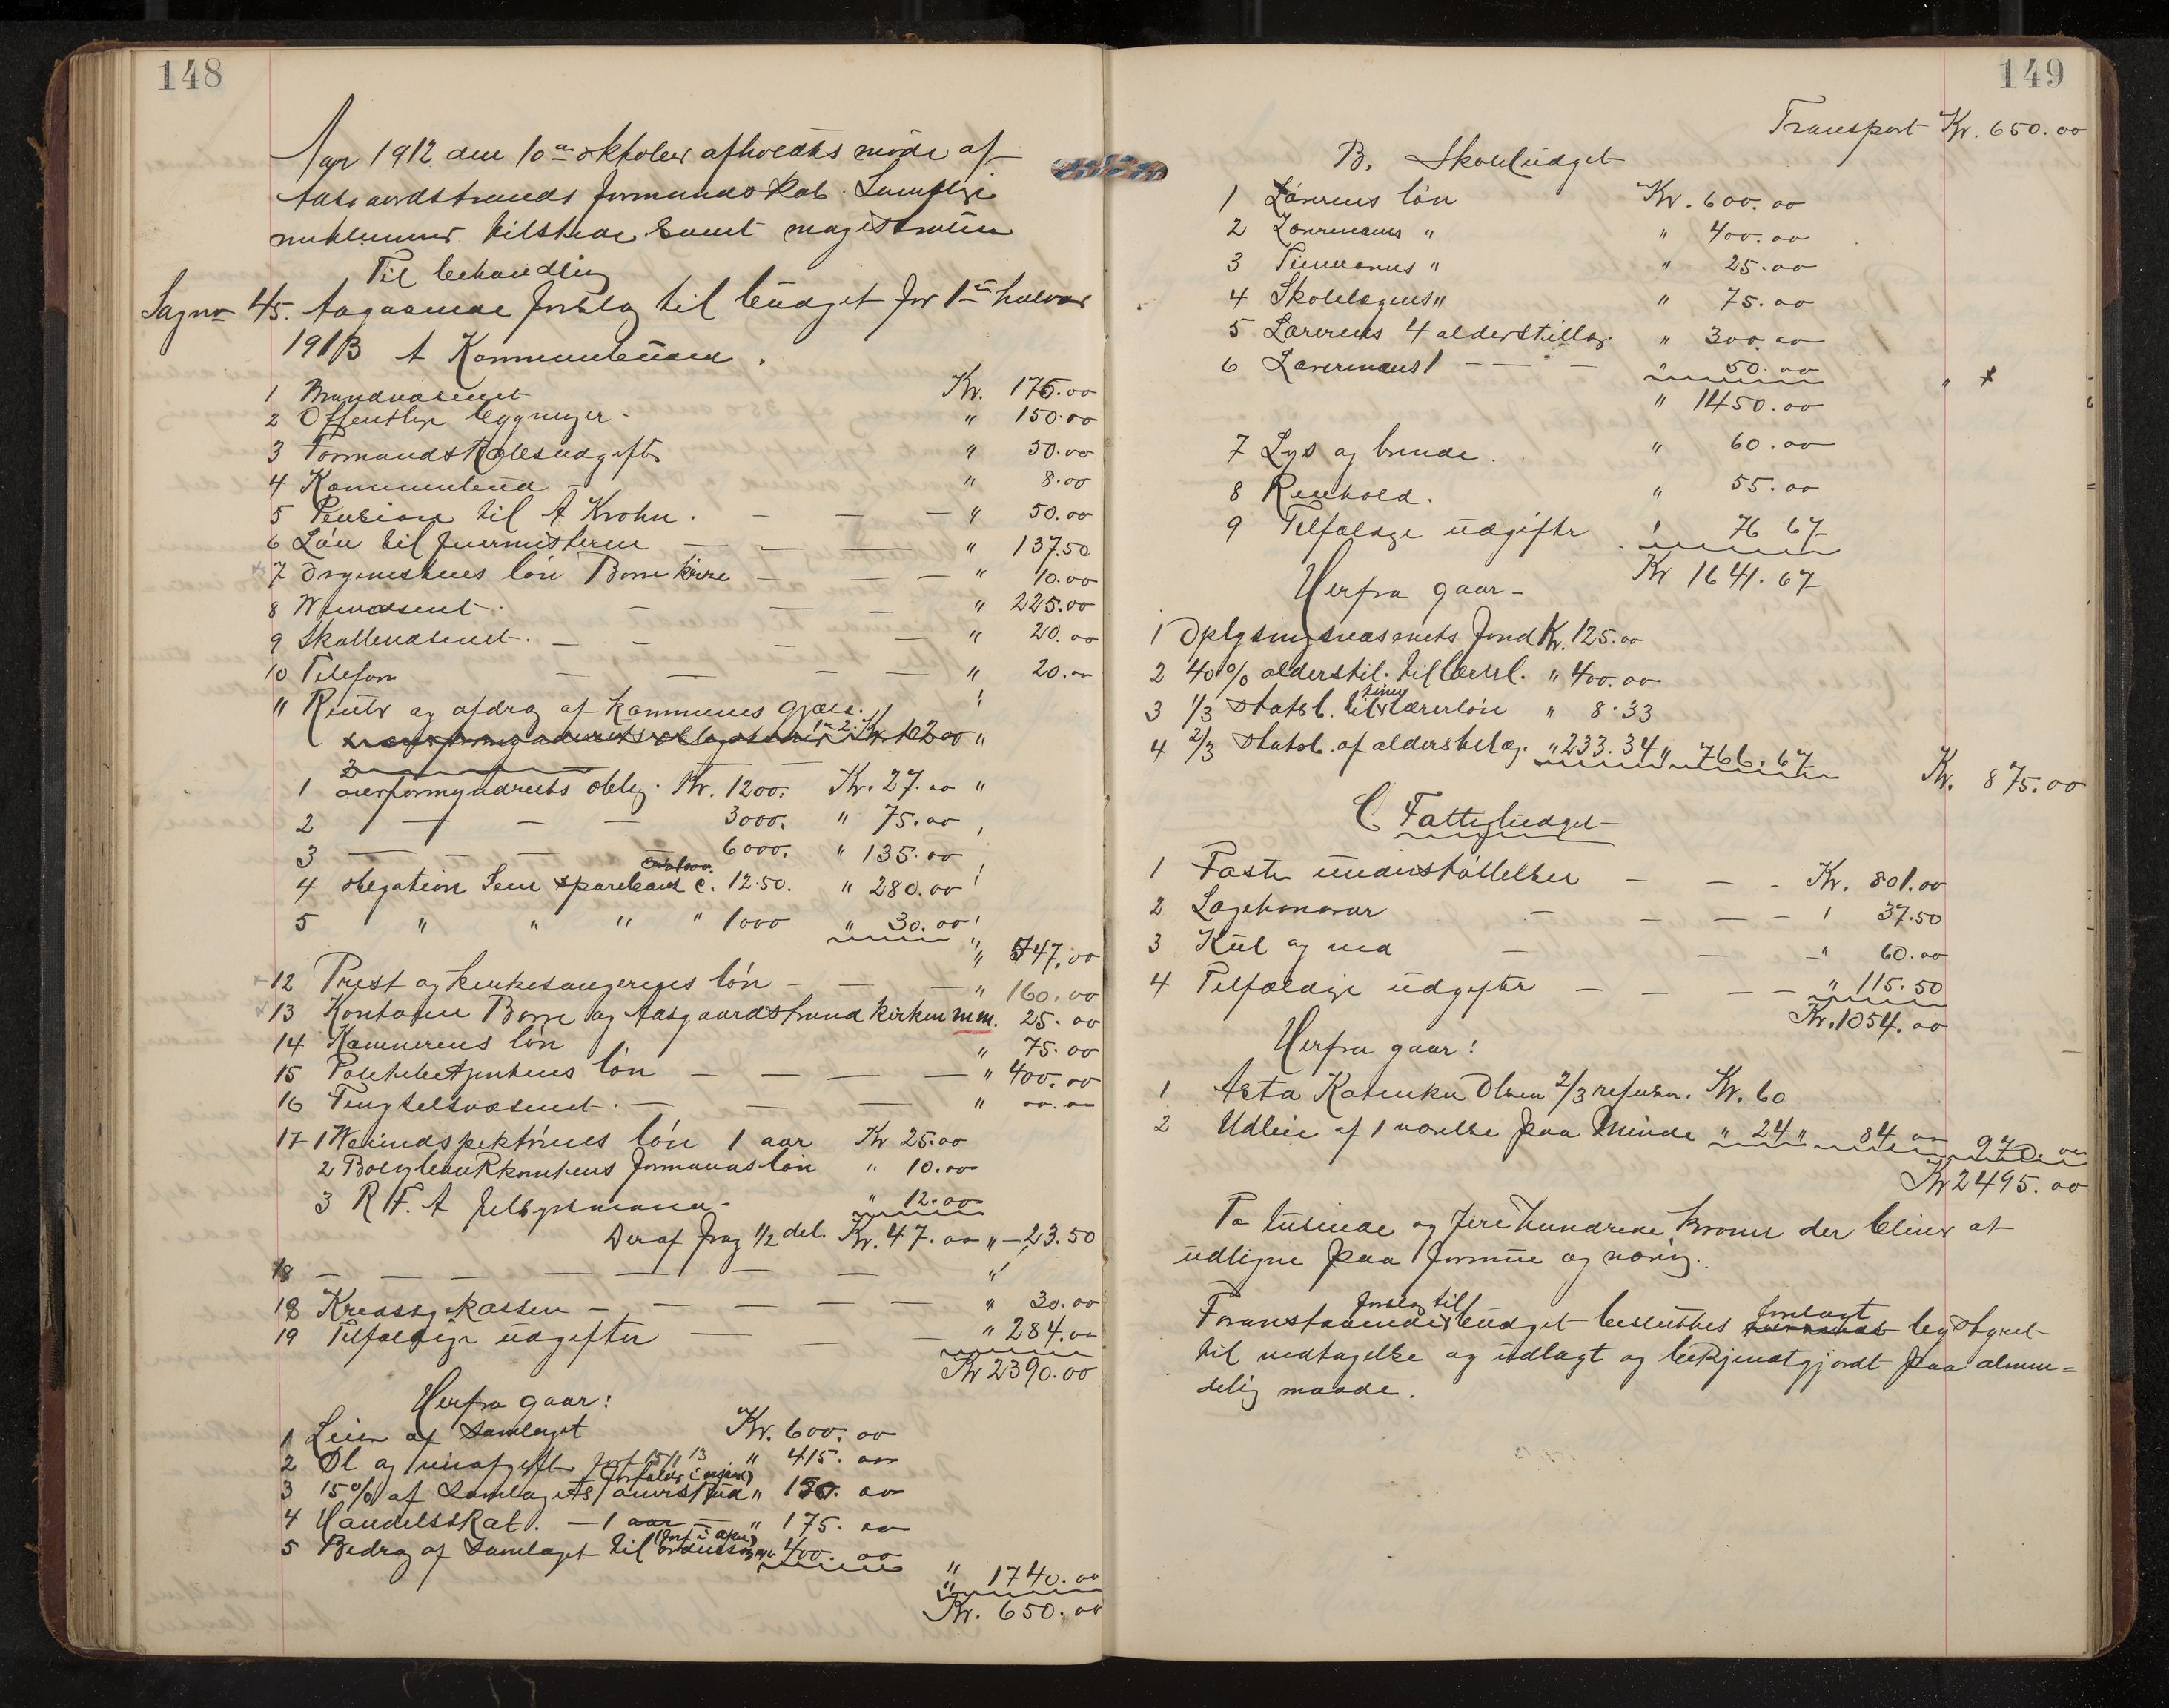 148
Aar 1912 den 10de oktober afholdtes møde af
Aasgaardstrands formandskab. Samtlige
medlemmer tilstede samt magistraten
Til behandling
Sagnr 45. Angaaende forslag til budget for 1ste halvaar
1913 A Kommunebudget.
1 Brandvæsenet Kr. 175.00
2 Offentlige bygninger - " 150.00
3 Formandskabsudgifter " 50.00
4 Kommunebud - " 8.00
5 Pension til A Krohn. — — — " 50.00
6 Løn til jurmisteren — — — " 137.50
7 Organistens løn Borre kirke — — — " 10.00
8 Weivæsenet. — — — " 225.00
9 Skattevæsenet. — — — — " 20.00
10 Telefon — — — — " 20.00
11 Renter og afdrag af kommunens gjæld. "
overformynderiets obligation 1 2. Kr. 10200 "
1 overformyndriets oblig. Kr. 1200. Kr. 27.00 "
2 — — — 3000. " 75.00 "
3 — — — — 6000. " 135.00 "
4 obligation Sem sparebank c. 12.50. " 280.00 "
5 " " " " 1000 " 30.00 "
" 547.00
12 Prest og kirkesangerens løn — — — " 160.00
13 Kontoen Borre og Aasgaardstrand kirken m.m. 25.00
14 Kæmnerens løn " 75.00
15 Politibetjentens løn — — — — " 400.00
16 Fengselsvæsenet. — — — " 00.00
17 1 Weiindspektørens løn 1 aar Kr 25.00
2 Boligbankkomitens formands løn " 10.00
3 R.F. A " 12.00
Deraf frag 1/2 del. Kr. 47.00 " — 23.50
18 — — — — — — — "
18 Kredssygekassen — — — — — — " 30.00
19 Tilfældige udgifter — — " 284.00
Kr 2390.00
Herfra gaar:
1 Leien af Samlaget Kr. 600.00
2 Øl og vinafgift forf 15/1 13 " 415.00
3 15% af Samlagets aarsskud " 150.00
4 Handelsskat. — 1 aar — " 175.00
5 Bedrag af Samlaget til 400.00
" 1740.00
Kr. 650.00
149
Transport Kr. 650.00
B. Skolebudget
1 Lærerens løn Kr. 600.00
2 Lærerindens " " 400.00
3 Timeernes " " 25.00
4 Skolelægens " " 75.00
5 Lærerens 4 alderstillæg. " 300.00
6 Lærerindens 1 — — — " 50.00
" 1450.00
7 Lys og brende. " 60.00
8 Renhold. " 55.00
9 Tilfældige udgifter " 76 67
Kr 1641.67
Herfra gaar -
1 Oplysningsvæsenets fond Kr. 125.00
2 40% alderstil. til lærerl. " 400.00
3 1/3 Statsb. til time lærerløn " 8.33
4 2/3 Statsb. af alderstilæg. " 233.34 " 766.67
Kr. 875.00
C Fattigbudget
1 Faste understøttelser — — — Kr. 801.00
2 Lægehonorar — — — — " 37.50
3 Kul og ved — — — " 60.00
4 Tilfældige udgifter — — — — " 115.50
Kr. 1054.00
Herfra gaar:
1 Asta Katinka Olsen 2/3 refusn. Kr. 60
2 Udleie af 1 værelse paa Minde " 24 " 84 00 970.00
Kr 2495.00
To tusinde og fire hundrede kroner der bliver at
udligne paa formue og næring.
Foranstaaende forslag til budget besluttes forelagt bystyret
til vedtagelse og udlagt og bekjendtgjordt paa almin=
delig maade.